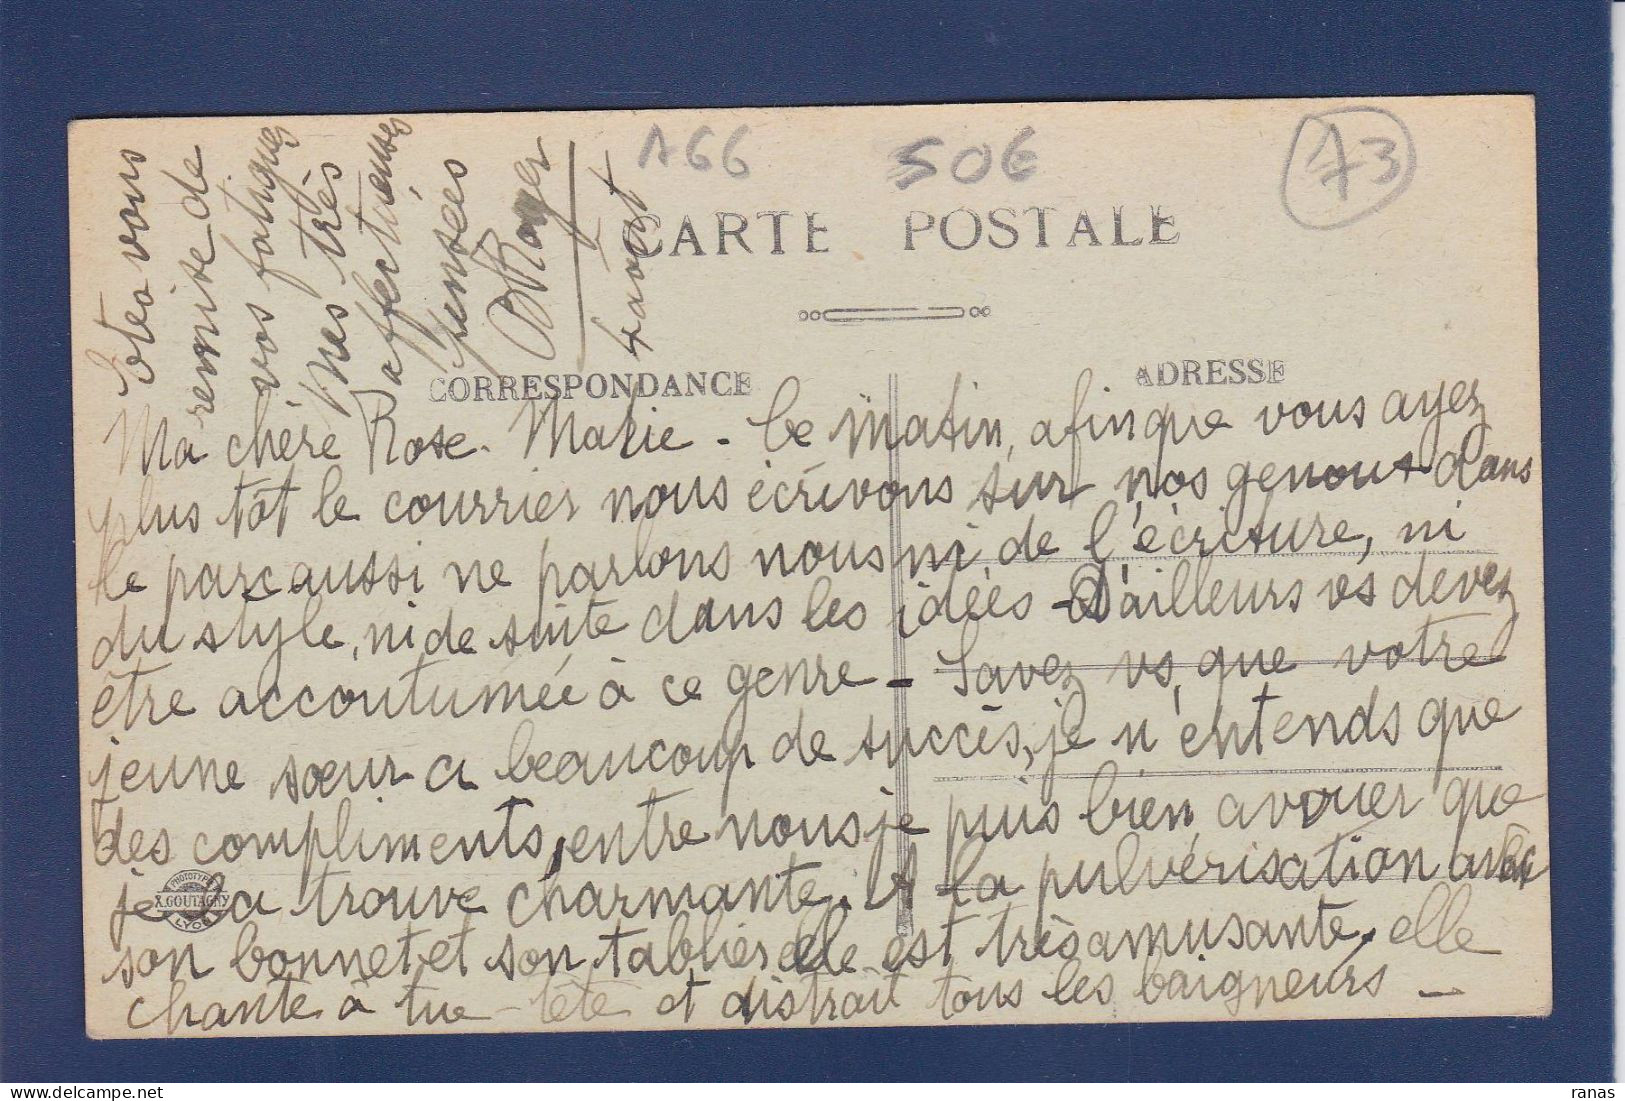 A66
50€
73
CARTE POSTALE
CORRESPONDANCE
ADRESSE
Ma chère Rose-Marie - Ce matin, afin que vous ayez
plus tôt le courrier nous écrivons sur nos genoux dans
le parc aussi ne parlons nous ni de l'écriture, ni
du style, ni de suite dans les idées - D'ailleurs vs devez
être accoutumée à ce genre - Savez vs, que votre
jeune sœur a beaucoup de succès, je n'entends que
des compliments, entre nous je puis bien avouer que
je la trouve charmante. A la pulvérisation avec
son bonnet et son tablier elle est très amusante, elle
chante à tue-tête et distrait tous les baigneurs -
Etes vous
remise de
vos fatigues
Mes très
affectueuses
pensées
Roger
4 août
PHOTOTYPIE
X. GOUTAGNY
LYON
ranas